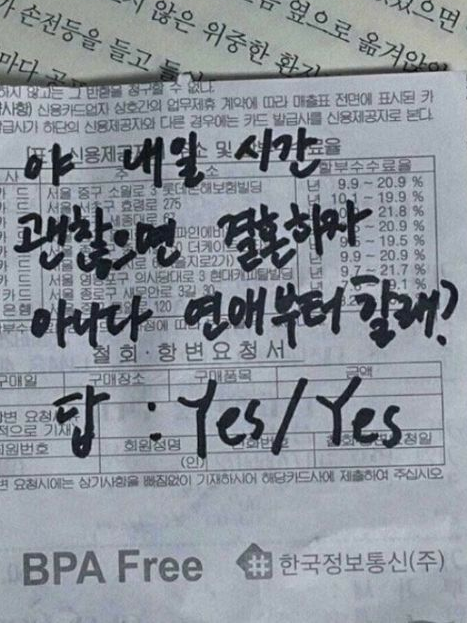 옆으로 옮겨앉
않은 위중한 환
손전등을 들고
마다
하지 않고는 그 반환을 청구할 수 없다.
사항) 신용카드업자 상호간의 업무제휴 계약에 따라 매출표 전면에 표시된 카
발급사가 하단의 신용제공자와 다른 경우에는 카드 발급사를 신용제공자로 본다.
야 내일 시간
괜찮으면 결혼하자
아니다 연애부터 할래?
답 : Yes/Yes
할부수수료율
서울 중구 소월로 3 롯데손해보험빌딩 년 9.9 ~ 20.9 %
효령로 275 19.9 %
21.8 %
20.9 %
19.5 %
20.9 %
의사당대로 3 현대캐피탈빌딩 21.7 %
서울 종로구 새문안로3길 30
120
철회·항변요청서
구매일 구매장소 구매품목 금액
회원번호 회원성명
(인)
변 요청시에는 상기사항을 빠짐없이 기재하시어 해당카드사에 제출하여 주십시오
BPA Free 한국정보통신(주)